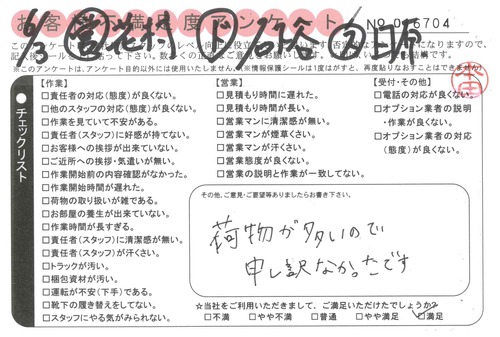 お客様不満足度アンケート
No 016704
6/3 営 花村 ド 石谷 助 日原
※このアンケートは、アンケート目的以外には使用いたしません。※情報保護シールは1度はがすと、再度貼りなおすことはできません!
チェックリスト
【作業】
□責任者の対応(態度)が良くない。
□他のスタッフの対応(態度)が良くない。
□作業を見ていて不安がある。
□責任者(スタッフ)に好感が持てない。
□お客様への挨拶が出来ていない。
□ご近所への挨拶・気遣いが無い。
□作業開始前の内容確認がなかった。
□作業開始時間が遅れた。
□荷物の取り扱いが雑である。
□お部屋の養生が出来ていない。
□作業時間が長すぎる。
□責任者(スタッフ)に清潔感が無い。
□責任者(スタッフ)が汗くさい。
□トラックが汚い。
□梱包資材が汚い。
□運転が不安(下手)である。
□靴下の履き替えをしてない。
□スタッフにやる気がみられない。
【営業】
□見積もり時間に遅れた。
□見積もり時間が長い。
□営業マンに清潔感が無い。
□営業マンが煙草くさい。
□営業マンが汗くさい。
□営業態度が良くない。
□営業の説明と作業が一致してない。
【受付・その他】
□電話の対応が良くない。
□オプション業者の説明
・作業が良くない。
□オプション業者の対応
(態度)が良くない。
その他、ご意見・ご要望等ありましたらお書き下さい。
荷物が多いので
申し訳なかったです
☆当社をご利用いただきまして、ご満足いただけでしょうか?
□不満 □やや不満 □普通 □やや満足 ☑満足